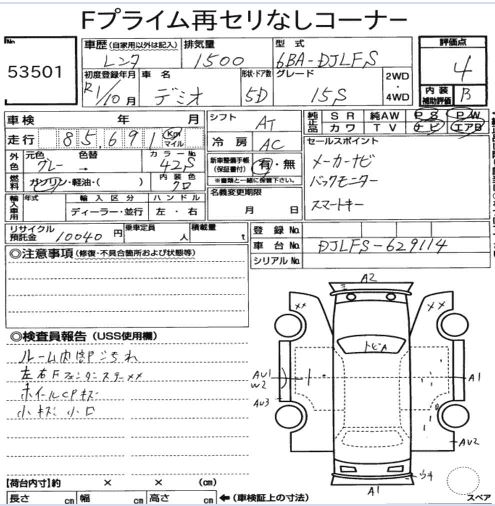 Fプライム再セリなしコーナー
No. 53501
車歴 (自家用以外は記入) レンタ
排気量 1500
型式 6BA-DJLFS
評価点 4
初度登録年月 R1/10月
車名 デミオ
形状・ドア数 5D
グレード 15S
2WD・4WD
内装補助評価 B
車検 年 月
走行 85,691 Km マイル
シフト AT
純正品 SR 純AW PS PW
カワ TV ナビ エアB
外色 元色 グレー 色替 → カラーNo. 42S
冷房 AC
燃料 ガソリン・軽油・( ) 内装色 クロ
新車整備手帳(保証書付) 有・無
※書類と一緒に保管下さい。
セールスポイント
メーカーナビ
バックモニター
スマートキー
輸入車用 年式 輸入区分 ディーラー・並行 ハンドル 左・右
名義変更期限 月 日
リサイクル預託金 10040円
乗車定員 人
積載量 t
登録No.
車台No. DJLFS-629114
シリアルNo.
◎注意事項 (修復・不具合箇所および状態等)
◎検査員報告 (USS使用欄)
ルーム内部ゴヨゴレ
左右Fフェンダーステー××
ホイールCPキズ
小キズ 小凹
A2
××
××
トビA
AU1
W2
AU3
A1
AU2
U4
A1
スペア
【荷台内寸】約 × × (cm)
長さ cm 幅 cm 高さ cm ←(車検証上の寸法)